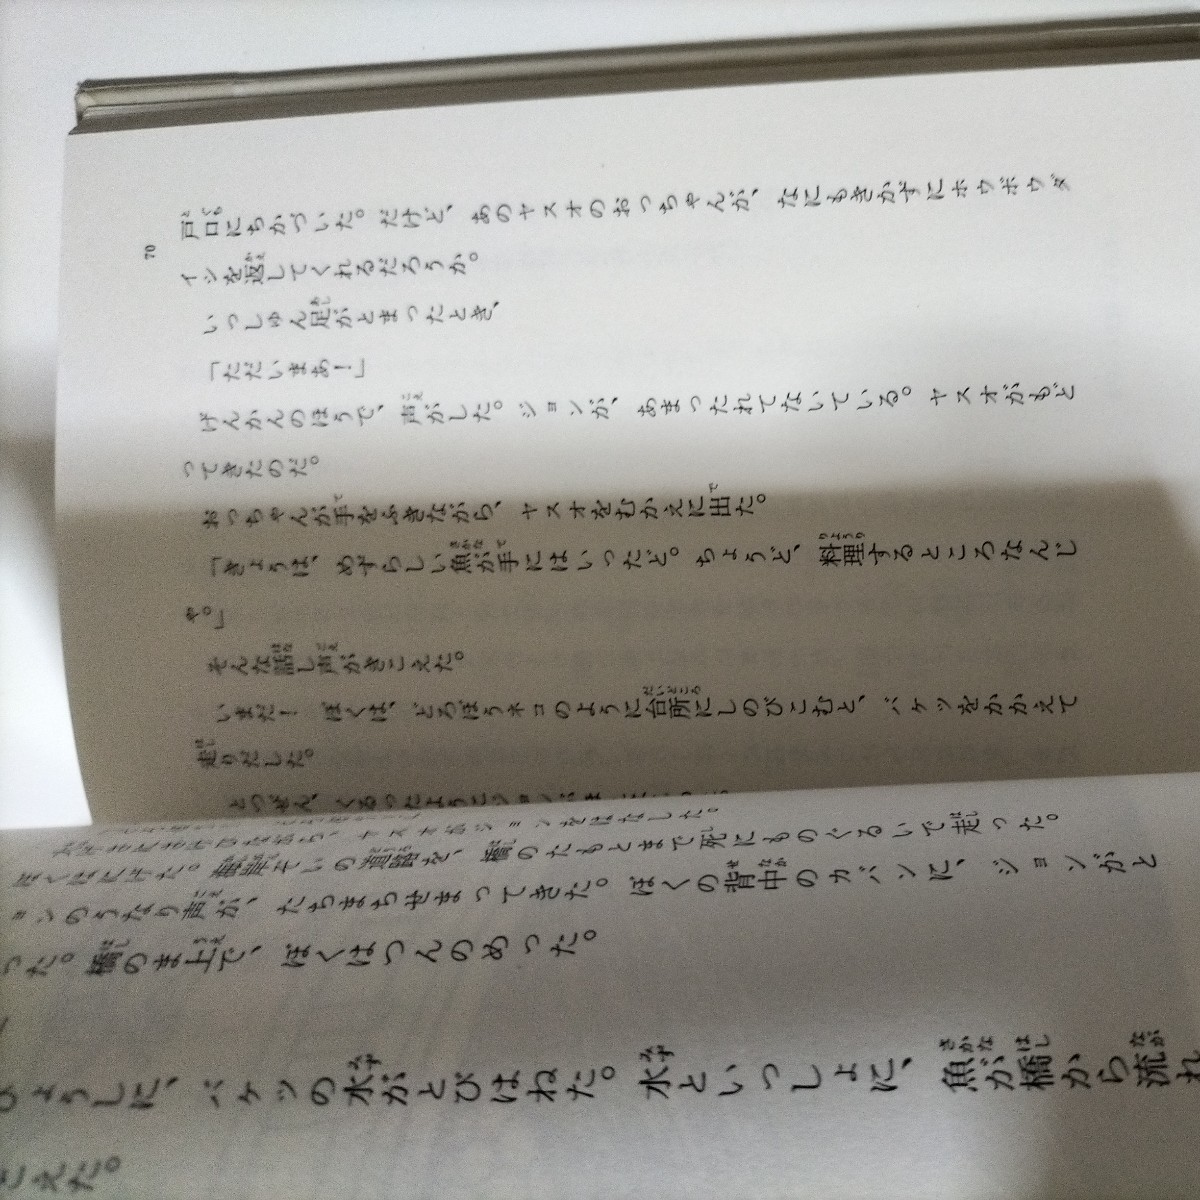 戸口にちかづいた。だけど、あのヤスオのおっちゃんが、なにもきかずにホウボウダ
イジを返してくれるだろうか。
いっしゅん足がとまったとき、
「ただいまあ！」
げんかんのほうで、声がした。ジョンが、あまったれてないている。ヤスオがもど
ってきたのだ。
おっちゃんが手をふきながら、ヤスオをむかえに出た。
「きょうは、めずらしい魚が手にはいったど。ちょうど、料理するところなんじ
ゃ。」
そんな話し声がきこえた。
いまだ！　ぼくは、どろぼうネコのように台所にしのびこむと、バケツをかかえて
走りだした。
とつぜん、くるったようにジョンが
70
ヤスオがジョンをはなした。
ぼくはにげた。海岸ぞいの道路を、橋のたもとまで死にものぐるいで走った。
ョンのうなり声が、たちまちせまってきた。ぼくの背中のカバンに、ジョンがと
った。橋のま上で、ぼくはつんのめった。
ひょうしに、バケツの水がとびはねた。水といっしょに、魚が橋から流れ
こえた。